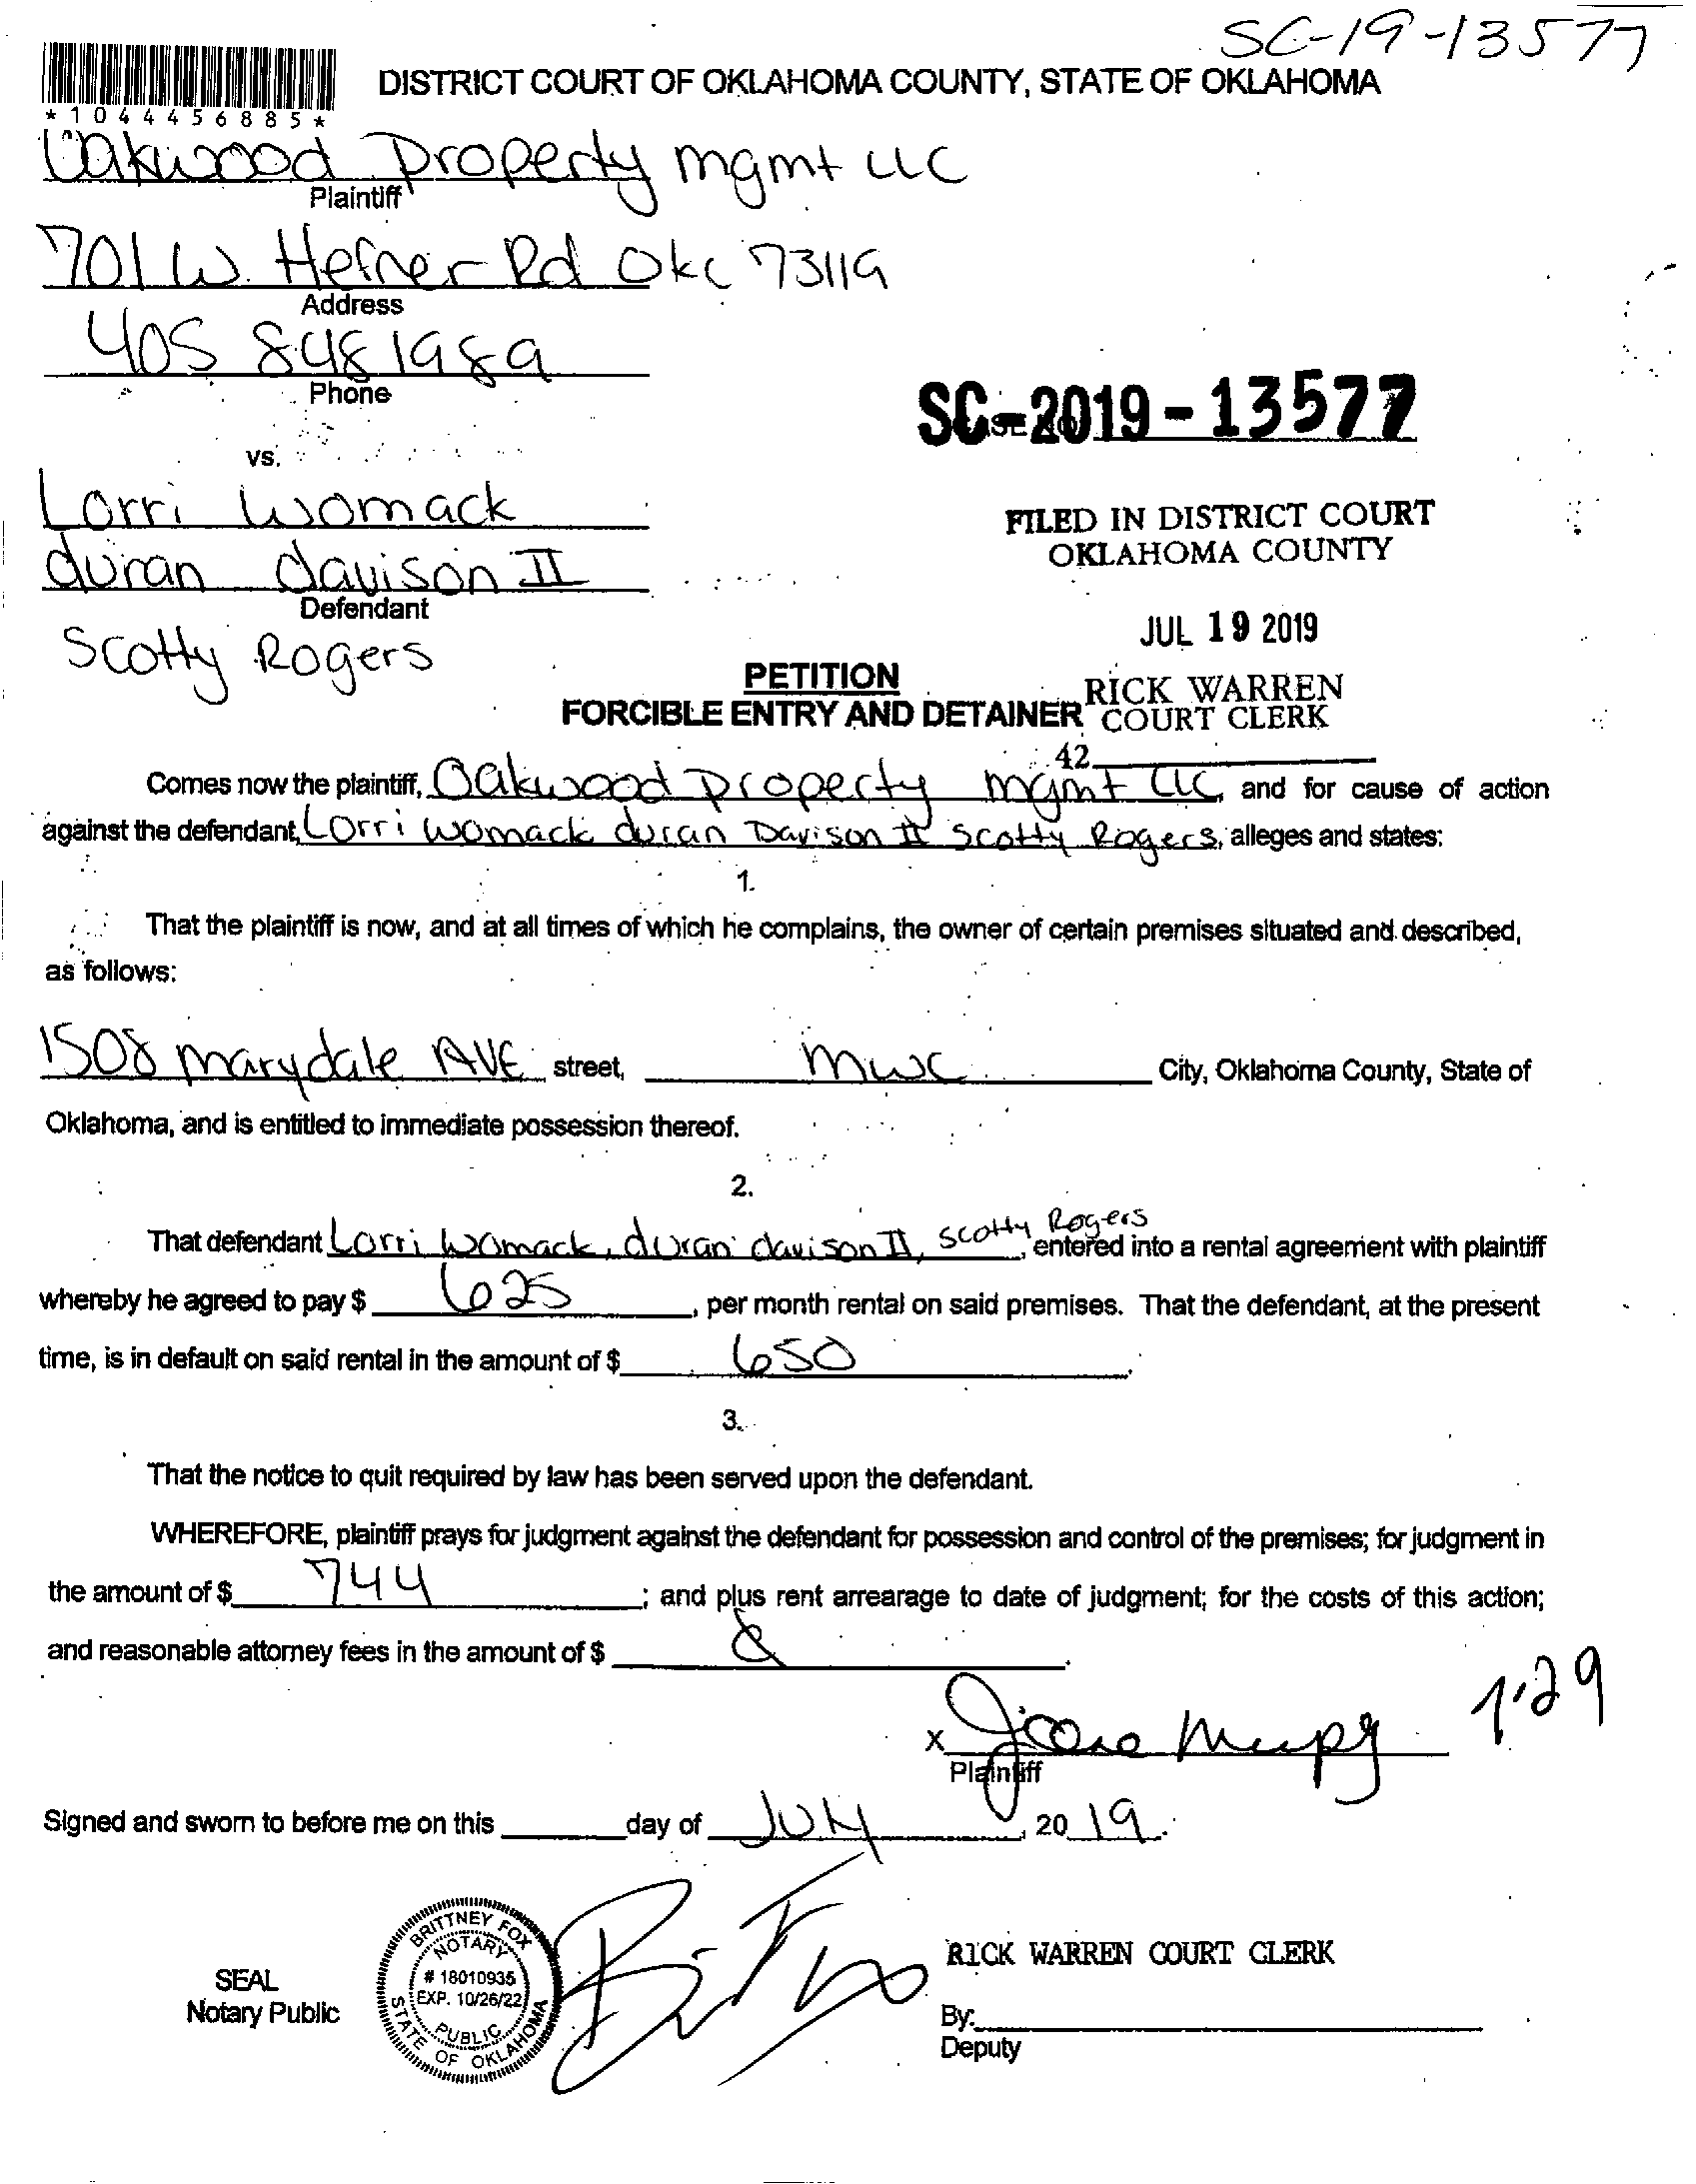 SC-19-13577
DISTRICT COURT OF OKLAHOMA COUNTY, STATE OF OKLAHOMA
*1044456885*
Oakwood Property mgmt LLC
Plaintiff
701 W. Hefner Rd Okc 73119
Address
405 848 1989
Phone
SC-2019-13577
vs.
Lorri Womack
duran davison II
Defendant
Scotty Rogers
FILED IN DISTRICT COURT
OKLAHOMA COUNTY
JUL 19 2019
RICK WARREN
COURT CLERK
42
PETITION
FORCIBLE ENTRY AND DETAINER
Comes now the plaintiff, Oakwood Property mgmt LLC, and for cause of action
against the defendant, Lorri Womack duran Davison II Scotty Rogers, alleges and states:
1.
That the plaintiff is now, and at all times of which he complains, the owner of certain premises situated and described,
as follows:
1508 marydale AVE street, mwc City, Oklahoma County, State of
Oklahoma, and is entitled to immediate possession thereof.
2.
That defendant Lorri Womack, duran davison II, scotty Rogers, entered into a rental agreement with plaintiff
whereby he agreed to pay $ 625, per month rental on said premises. That the defendant, at the present
time, is in default on said rental in the amount of $ 650.
3.
That the notice to quit required by law has been served upon the defendant.
WHEREFORE, plaintiff prays for judgment against the defendant for possession and control of the premises; for judgment in
the amount of $ 744; and plus rent arrearage to date of judgment; for the costs of this action;
and reasonable attorney fees in the amount of $
7.29
X
Plaintiff
Signed and sworn to before me on this ____ day of July, 2019.
BRITTNEY FOX
NOTARY
# 18010935
EXP. 10/26/22
PUBLIC
STATE OF OKLAHOMA
SEAL
Notary Public
RICK WARREN COURT CLERK
By:
Deputy